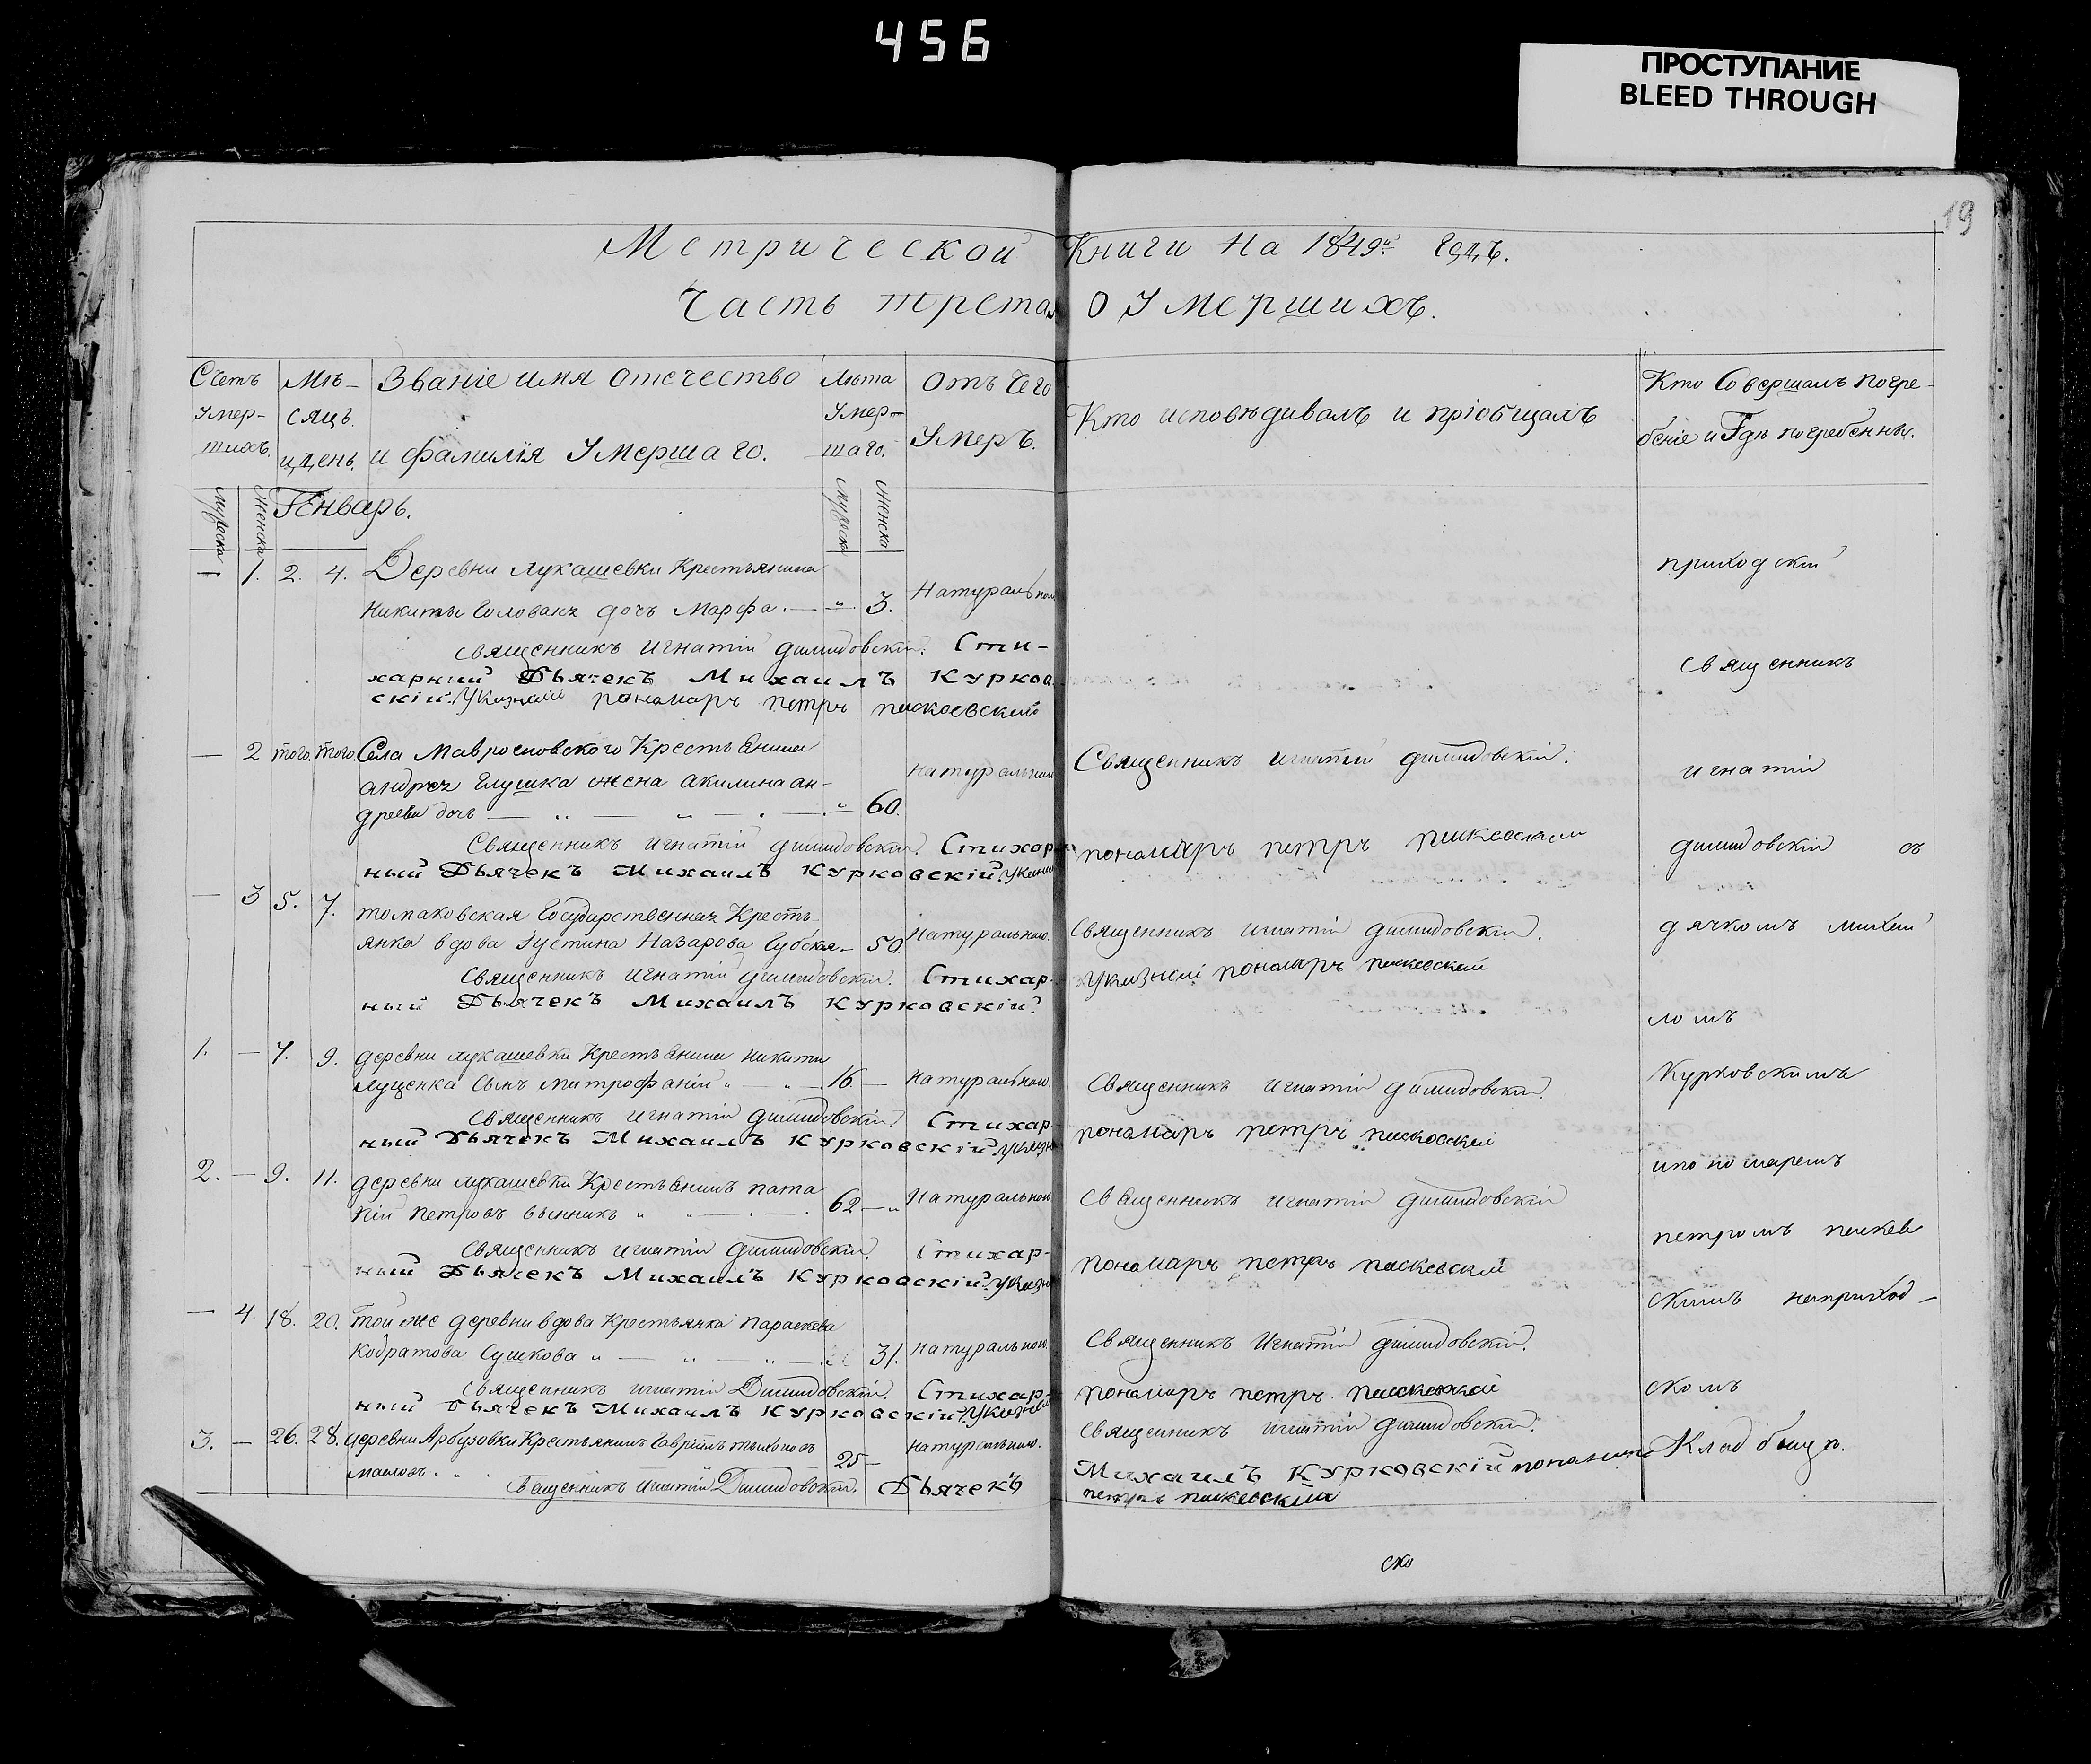 456
ПРОСТУПАНИЕ
BLEED THROUGH
19
Метрической Книги на 1849й Годъ.
Часть третая О Умершихъ.
Счетъ Умер-шихъ.
Мѣ-сяцъ. и день.
Званіе имя отечество и фамилія Умершаго.
Лѣта Умер-шаго.
Отъ чего Умеръ.
Кто исповѣдивалъ и пріобщалъ
Кто Совершалъ погре-беніе и Гдѣ погребенны.
Мужеска Женска Генварь. Мужеска Женска
— 1. 2. 4. Деревни Лукашевки Крестьянина
Никиты Голована дочь Марфа. — „ 3. Натуральною
Священникъ Игнатій Димидовскій. Сти-
харный Дьячекъ Михаилъ Курков
скій. Указный пономарь петръ
— 2 того. того. Села Крестьянина
андрея Глушка жена акилина ан-
дреева дочь — „ — „ — „ 60. натуральною
Священникъ игнатій димидовскій.
Священникъ Игнатій димидовскій. Стихар
ный Дьячекъ Михаилъ Курковскій
пономарь петръ
— 3 5. 7. томаковская Государственная Кресть-
янка вдова Іустина Назарова Губская — 50. Натуральною.
Священникъ игнатій димидовскій.
Священникъ Игнатій димидовскій. Стихар-
ный Дьячекъ Михаилъ Курковскій
Указный пономарь
1. — 7. 9. деревни лукашевки Крестьянина никиты
Луценка Сынъ Митрофаній „ — „ — 16 — Натуральною.
Священникъ Игнатій димидовскій.
Священникъ Игнатій димидовскій. Стихар
ный Дьячекъ Михаилъ Курковскій
пономарь петръ
2. — 9. 11. деревни лукашевки Крестьянинъ пата
пій Петровъ 62 — „ Натуральною.
Священникъ игнатій димидовскій
Священникъ игнатій димидовскій. Стихар-
ный Дьячекъ Михаилъ Курковскій
пономарь петръ
— 4. 18. 20. той же деревни вдова Крестьянка параскева
Кодратова Сушкова „ — „ — „ — 31. натуральною.
Священникъ Игнатій димидовскій.
Священникъ игнатій Димидовскій. Стихар-
ный Дьячекъ Михаилъ Курковскій
пономарь петръ
3. — 26. 28. деревни Арбузовки Крестьянинъ Гавріилъ
25 — натуральною.
Священникъ игнатій димидовскій.
Священникъ Игнатій Димидовскій. Дьячекъ
Михаилъ Курковскій
петръ
приходскій
священникъ
игнатій
димидовскій съ
дячкомъ михаи
ломъ
Курковскимъ
и пономаремъ
петромъ
скимъ на приход-
скомъ
Кладбищѣ.
ско